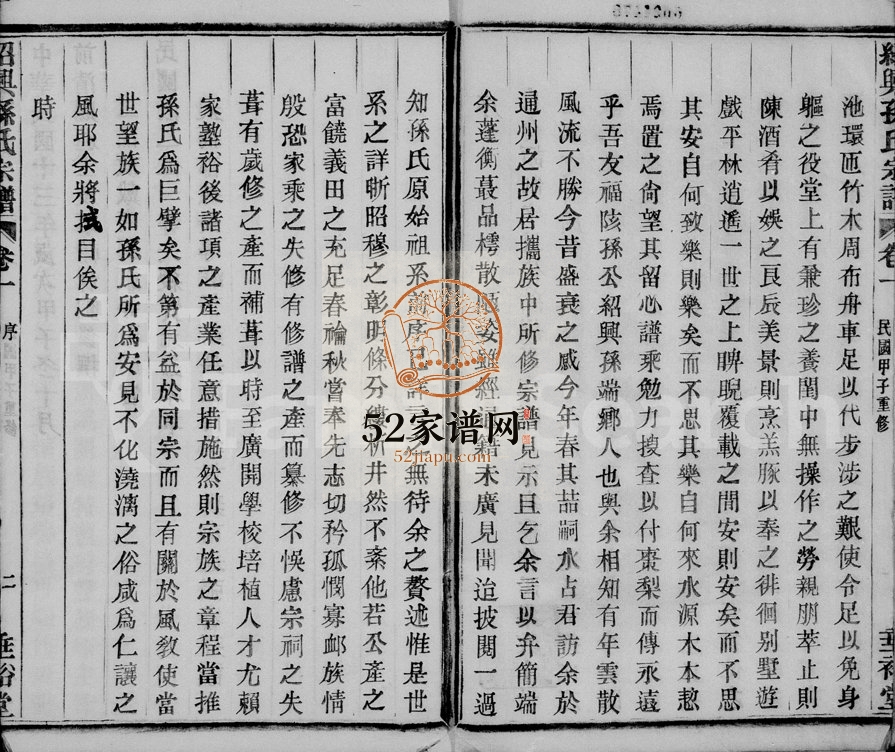 池環匝竹木周布舟車足以代步涉之艱使令足以免身
軀之役堂上有兼珍之養閨中無操作之勞親朋萃止則
陳酒肴以娛之良辰美景則烹羔豚以奉之徘徊別墅遊
戲平林逍遙一世之上睥睨覆載之間安則安矣而不思
其安自何致樂則樂矣而不思其樂自何來水源木本愸
焉置之尚望其留心譜乘勉力搜查以付棗梨而傳永遠
乎吾友福陔孫公紹興孫端鄉人也與余相知有年雲散
風流不勝今昔盛衰之感今年春其喆嗣水占君訪余於
通州之故居攜族中所修宗譜見示且乞余言以弁簡端
余蓬衡蕞品樗散姿雖經未廣見聞洽披閱一過
紹興孫氏宗譜 卷一 民國甲子重修 垂裕堂
知孫氏原始祖系前序已詳言無待余之贅述惟是世
系之詳昕昭穆之彰明條分縷析井然不紊他若公產之
富饒義田之充足春禴秋嘗奉先志切矜孤憫寡卹族情
殷恐家乘之失修有修譜之產而纂修不悞慮宗祠之失
葺有歲修之產而補葺以時至廣開學校培植人才尤賴
家塾裕後諸項之產業任意措施然則宗族之章程當推
孫氏爲巨擘矣不第有益於同宗而且有關於風敎使當
世望族一如孫氏所爲安見不化澆漓之俗咸爲仁讓之
風耶余將拭目俟之
時
紹興孫氏宗譜 卷一 序 二 垂裕堂
52家谱网
52jiapu.com